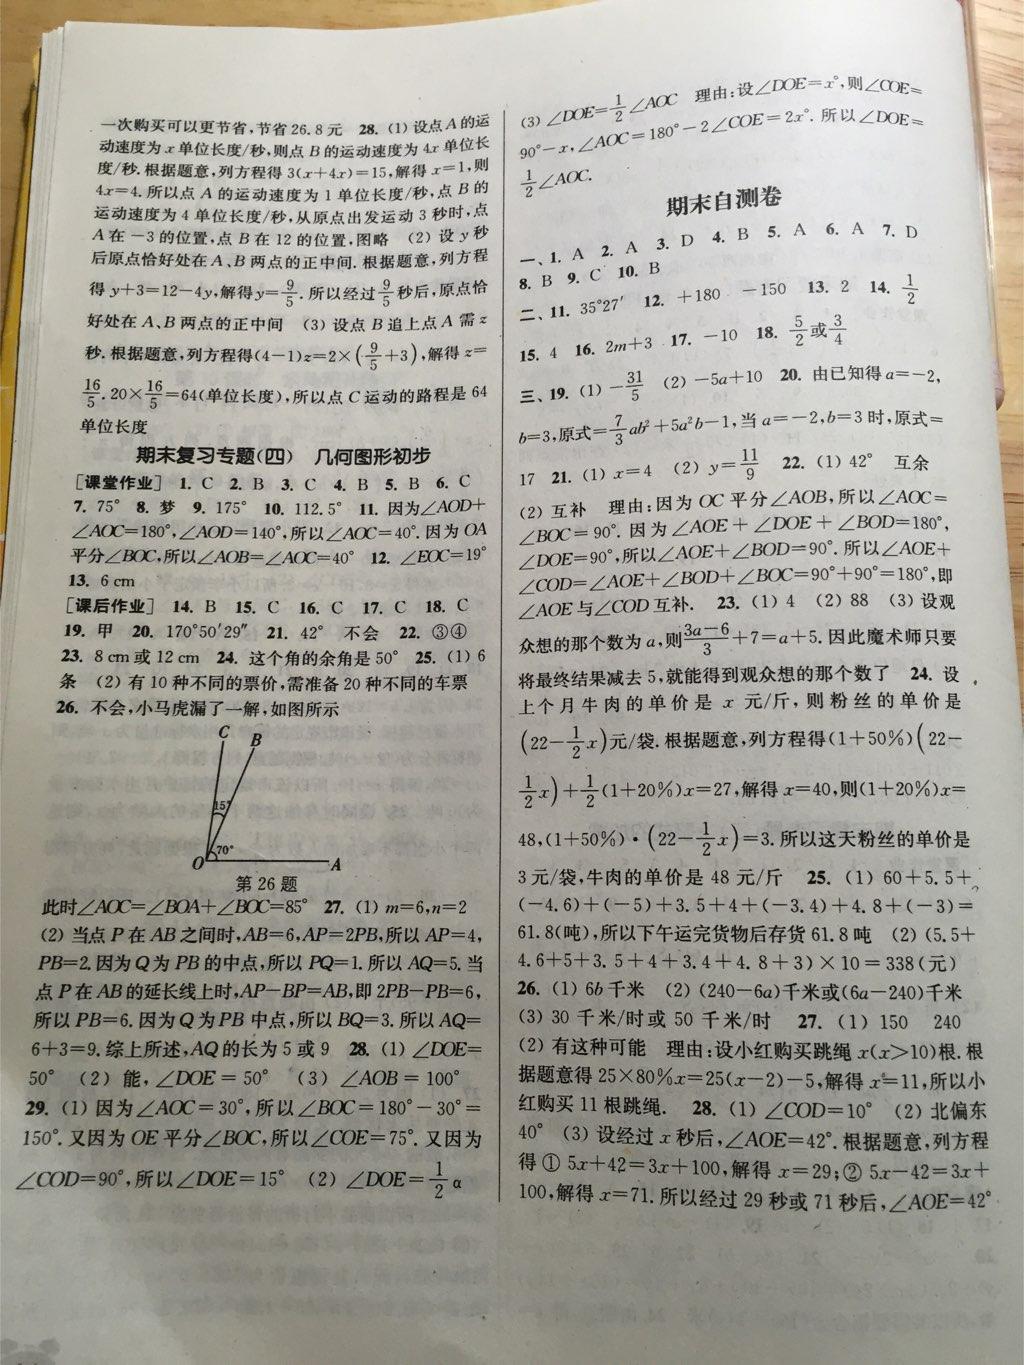 一次购买可以更节省,节省26.8元 28. (1) 设点A的运
动速度为x单位长度/秒,则点B的运动速度为4x单位长
度/秒.根据题意,列方程得3(x+4x)=15,解得x=1,则
4x=4.所以点A的运动速度为1单位长度/秒,点B的
运动速度为4单位长度/秒,从原点出发运动3秒时,点
A在-3的位置,点B在12的位置,图略 (2) 设y秒
后原点恰好处在A、B两点的正中间.根据题意,列方程
得y+3=12-4y,解得y=9/5.所以经过9/5秒后,原点恰
好处在A、B两点的正中间 (3) 设点B追上点A需z
秒.根据题意,列方程得(4-1)z=2×(9/5+3),解得z=
16/5.20×16/5=64(单位长度),所以点C运动的路程是64
单位长度
期末复习专题(四) 几何图形初步
[课堂作业] 1. C 2. B 3. C 4. B 5. B 6. C
7. 75° 8. 梦 9. 175° 10. 112.5° 11. 因为∠AOD+
∠AOC=180°,∠AOD=140°,所以∠AOC=40°.因为OA
平分∠BOC,所以∠AOB=∠AOC=40° 12. ∠EOC=19°
13. 6 cm
[课后作业] 14. B 15. C 16. C 17. C 18. C
19. 甲 20. 170°50′29″ 21. 42° 不会 22. ③④
23. 8 cm或12 cm 24. 这个角的余角是50° 25. (1) 6
条 (2) 有10种不同的票价,需准备20种不同的车票
26. 不会,小马虎漏了一解,如图所示
C B
15°
70°
O A
第26题
此时∠AOC=∠BOA+∠BOC=85° 27. (1) m=6,n=2
(2) 当点P在AB之间时,AB=6,AP=2PB,所以AP=4,
PB=2.因为Q为PB的中点,所以PQ=1.所以AQ=5.当
点P在AB的延长线上时,AP-BP=AB,即2PB-PB=6,
所以PB=6.因为Q为PB中点,所以BQ=3.所以AQ=
6+3=9.综上所述,AQ的长为5或9 28. (1) ∠DOE=
50° (2) 能,∠DOE=50° (3) ∠AOB=100°
29. (1) 因为∠AOC=30°,所以∠BOC=180°-30°=
150°.又因为OE平分∠BOC,所以∠COE=75°.又因为
∠COD=90°,所以∠DOE=15° (2) ∠DOE=1/2α
(3) ∠DOE=1/2∠AOC 理由:设∠DOE=x°,则∠COE=
90°-x,∠AOC=180°-2∠COE=2x°.所以∠DOE=
1/2∠AOC.
期末自测卷
一、1. A 2. A 3. D 4. B 5. A 6. A 7. D
8. B 9. C 10. B
二、11. 35°27′ 12. +180 -150 13. 2 14. 1/2
15. 4 16. 2m+3 17. -10 18. 5/2或3/4
三、19. (1) -31/5 (2) -5a+10 20. 由已知得a=-2,
b=3,原式=7/3ab²+5a²b-1,当a=-2,b=3时,原式=
17 21. (1) x=4 (2) y=11/9 22. (1) 42° 互余
(2) 互补 理由:因为OC平分∠AOB,所以∠AOC=
∠BOC=90°.因为∠AOE+∠DOE+∠BOD=180°,
∠DOE=90°,所以∠AOE+∠BOD=90°.所以∠AOE+
∠COD=∠AOE+∠BOD+∠BOC=90°+90°=180°,即
∠AOE与∠COD互补. 23. (1) 4 (2) 88 (3) 设观
众想的那个数为a,则3a-6/3+7=a+5.因此魔术师只要
将最终结果减去5,就能得到观众想的那个数了 24. 设
上个月牛肉的单价是x元/斤,则粉丝的单价是
(22-1/2x)元/袋.根据题意,列方程得(1+50%)(22-
1/2x)+1/2(1+20%)x=27,解得x=40,则(1+20%)x=
48,(1+50%)·(22-1/2x)=3.所以这天粉丝的单价是
3元/袋,牛肉的单价是48元/斤 25. (1) 60+5.5+
(-4.6)+(-5)+3.5+4+(-3.4)+4.8+(-3)=
61.8(吨),所以下午运完货物后存货61.8吨 (2) (5.5+
4.6+5+3.5+4+3.4+4.8+3)×10=338(元)
26. (1) 6b千米 (2) (240-6a)千米或(6a-240)千米
(3) 30千米/时或50千米/时 27. (1) 150 240
(2) 有这种可能 理由:设小红购买跳绳x(x>10)根.根
据题意得25×80%x=25(x-2)-5,解得x=11,所以小
红购买11根跳绳. 28. (1) ∠COD=10° (2) 北偏东
40° (3) 设经过x秒后,∠AOE=42°.根据题意,列方程
得 ① 5x+42=3x+100,解得x=29;② 5x-42=3x+
100,解得x=71.所以经过29秒或71秒后,∠AOE=42°